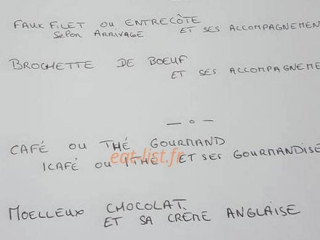 FAUX FILET OU ENTRECÔTE
SELON ARRIVAGE ET SES ACCOMPAGNEMEN
BROCHETTE DE BOEUF
ET SES ACCOMPAGNEME
— o —
CAFÉ OU THÉ GOURMAND
1CAFÉ OU 1THÉ ET SES GOURMANDISE
eat-list.fr
MOELLEUX CHOCOLAT
ET SA CREME ANGLAISE